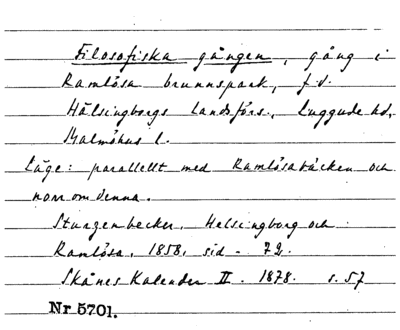 Filosofiska gången, gång i
Ramlösa brunnspark, f.d.
Hälsingborgs landsförs., Luggude hd,
Malmöhus l.
Läge: parallellt med Ramlösabäcken och
norr om denna.
Sturzenbecker, Helsingborg och
Ramlösa, 1858, sid. 72.
Skånes Kalender II. 1878. s. 57
Nr 5701.